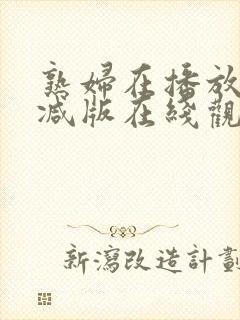 熟婦在播放
减版在綫觀
新瀉改造計劃